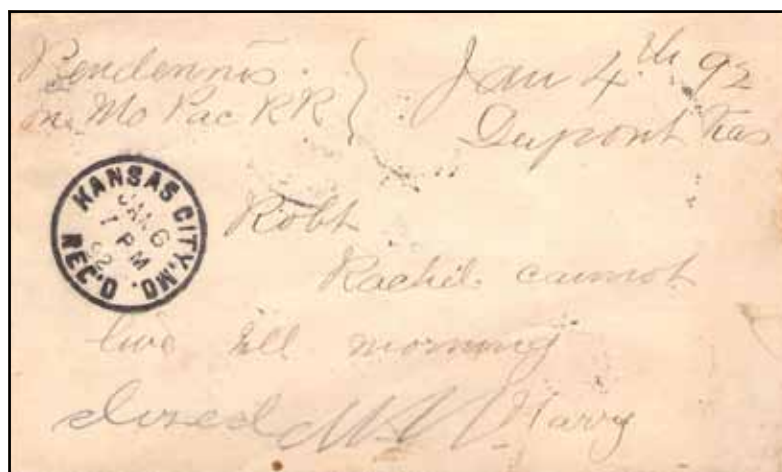 Pendennis
on Mo Pac RR
Jan 4th 92
Dupont Kas
KANSAS CITY, MO.
JAN 6
1 PM
92
REC'D.
Robt
Rachel cannot
live till morning
Harry